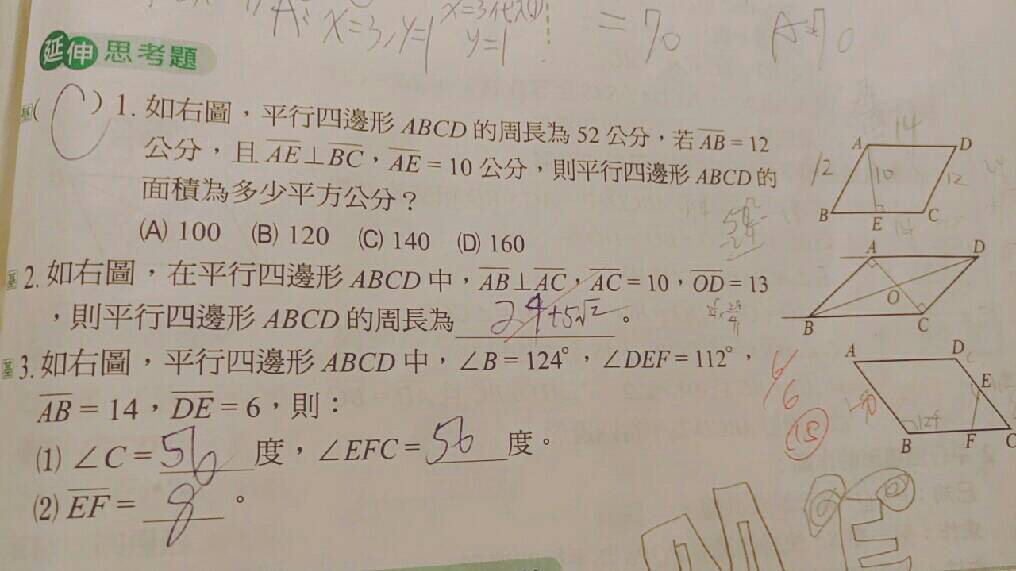 x=3,y=1
x=3代入①
y=1
=7。
A:7。
延伸 思考題
基( C ) 1. 如右圖，平行四邊形 ABCD 的周長為 52 公分，若 AB = 12
公分，且 AE⊥BC，AE = 10 公分，則平行四邊形 ABCD 的
面積為多少平方公分？
(A) 100 (B) 120 (C) 140 (D) 160
A 14 D
12 10 12
B E C
14
基 2. 如右圖，在平行四邊形 ABCD 中，AB⊥AC，AC = 10，OD = 13
，則平行四邊形 ABCD 的周長為 24+5√2 。
A D
O
B C
基 3. 如右圖，平行四邊形 ABCD 中，∠B = 124°，∠DEF = 112°，
AB = 14，DE = 6，則：
(1) ∠C = 56 度，∠EFC = 56 度。
(2) EF = 8 。
6/6
15
A D
E
124
B F C